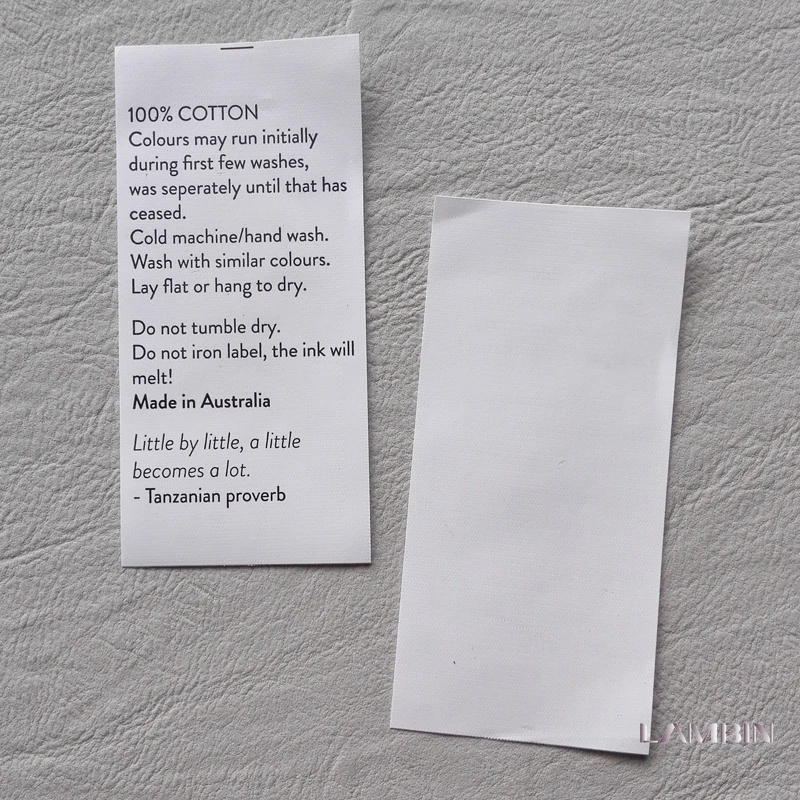 100% COTTON
Colours may run initially
during first few washes,
was seperately until that has
ceased.
Cold machine/hand wash.
Wash with similar colours.
Lay flat or hang to dry.
Do not tumble dry.
Do not iron label, the ink will
melt!
Made in Australia
Little by little, a little
becomes a lot.
- Tanzanian proverb
LAMBIN